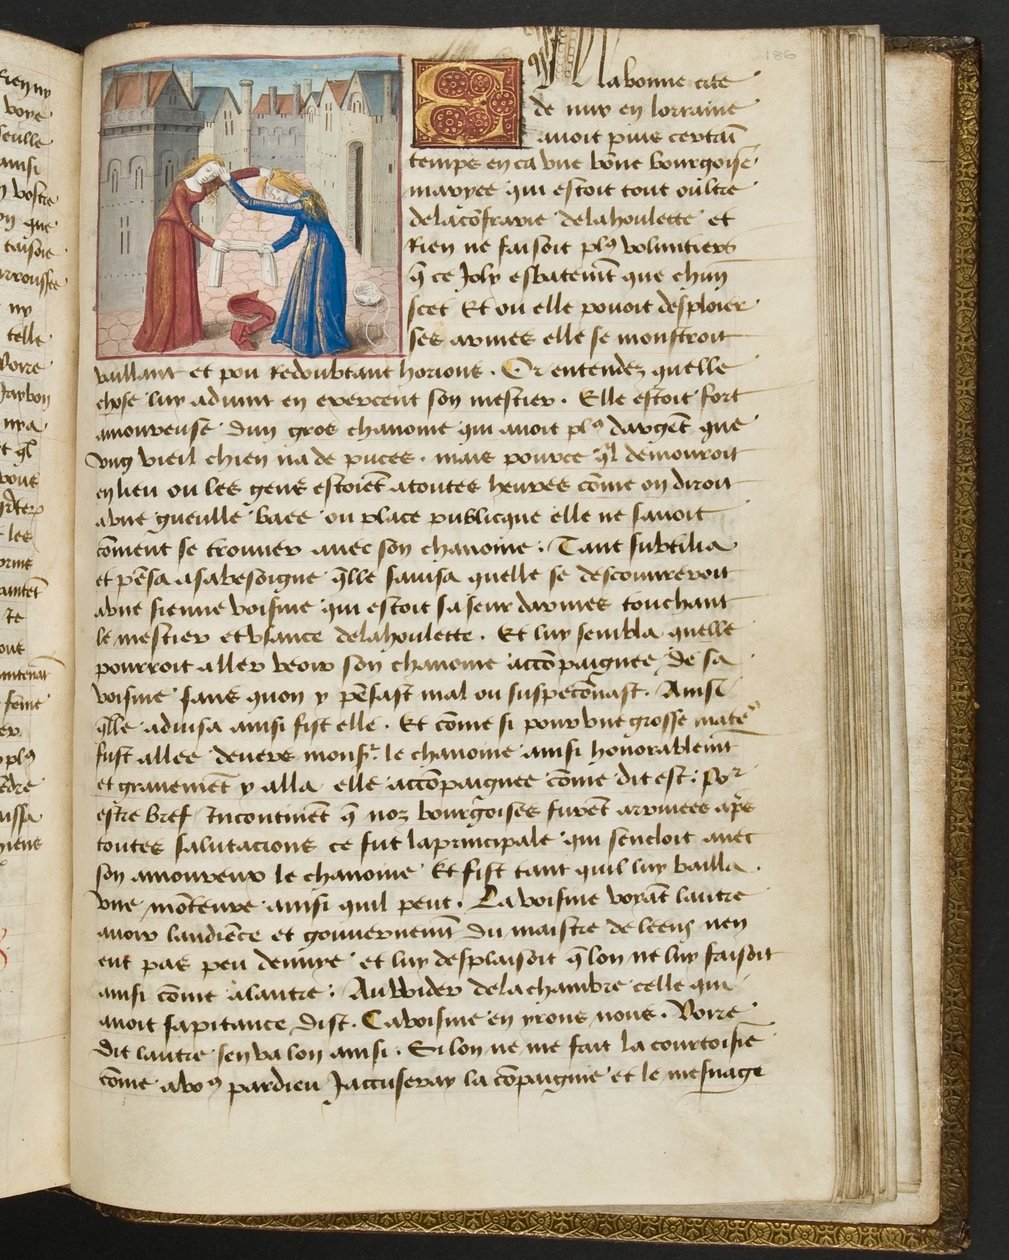 186
En la bonne cite
de mix en lorraine
avoit puis certāī
temps en ca vne bōne bourgoise
maryee qui estoit tout oultre
de la cōfrarie de la houlette et
Rien ne faisoit plꝯ voluntiers
q̄ ce Joly esbatemēt que chūn
scet Et ou elle pouoit desploier
ses armes elle se monstroit
vaillant et pou redoubtant horions . Or entendez quelle
chose luy aduint en exercent son mestier . Elle estoit fort
amoureuse dun gros chanoine qui auoit plꝯ dargēt que
vng vieil chien na de puces . mais pource q̄l demouroit
en lieu ou les gens estoiēt a toutes heures cōme on diroit
a vne gueulle baee ou place publicque elle ne sauoit
cōment se trouuer auec son chanoine . Tant subtilia
et pēsa a sa besoigne q̄lle sauisa quelle se descouureroit
a vne sienne voisine qui estoit sa seur darmes touchant
le mestier et vsance de la houlette . Et luy sembla quelle
pourroit aller veoir son chanoine accōpaignee de sa
voisine sans quon y pēsast mal ou suspecōnast . Ainsi
q̄lle aduisa ainsi fist elle . Et cōme si pour vne grosse matē
fust allee deuers monsr le chanoine ainsi honorablemt
et grauemēt y alla elle accōpaignee cōme dit est . Por
estre bref Incontinēt q̄ noz bourgoises furēt arriuees ap̄s
toutes salutacions ce fut la principale qui sencloit auec
son amoureux le chanoine Et fist tant quil luy bailla .
vne mōteure ainsi quil peut . La voisine voyāt lautre
auoir laudiēce et gouuernemt du maistre de leens nen
eut pas peu denuye et luy desplaisoit q̄ lon ne luy faisoit
ainsi cōme a lautre . Au wider de la chambre celle qui
auoit sa pitance dist . Ca voisine en yrons nous . Voire
dit lautre sen va lon ainsi . Si lon ne me fait la courtoisie
cōme a voꝯ pardieu Jaccuseray la cōpaignie et le mesnage